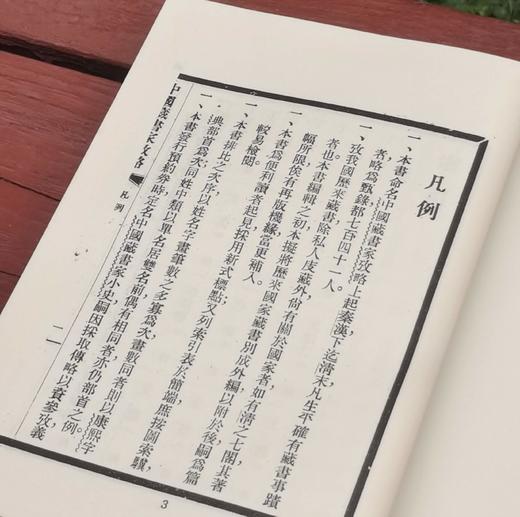 凡例
一、本書命名中國藏書家攷略上起秦漢下迄清末凡生不確有藏書事蹟
者略爲甄錄都七百四十一人。
一、攷我國歷來藏書除私人庋藏外尙有關於國家者如有清之七閣其著
者也本書編輯之初本擬將歷來國家藏書別成外編以附於後嗣爲篇
幅所限俟有再版機緣當更補入。
一、本書爲便利讀者起見採用新式標點；又列索引表於簡端庶按圖索驥，
較易檢閱
一、本書排比之次序以姓名字畫筆數之多寡爲次畫數同者則以康熙字
典部首爲次同姓中類以單名居雙名前偶有相同者亦仍部首之例。
一、本書發行預約券時定名中國藏書家小史嗣因採取傳略以資參攷義
中國藏書家攷略
凡例
二
3